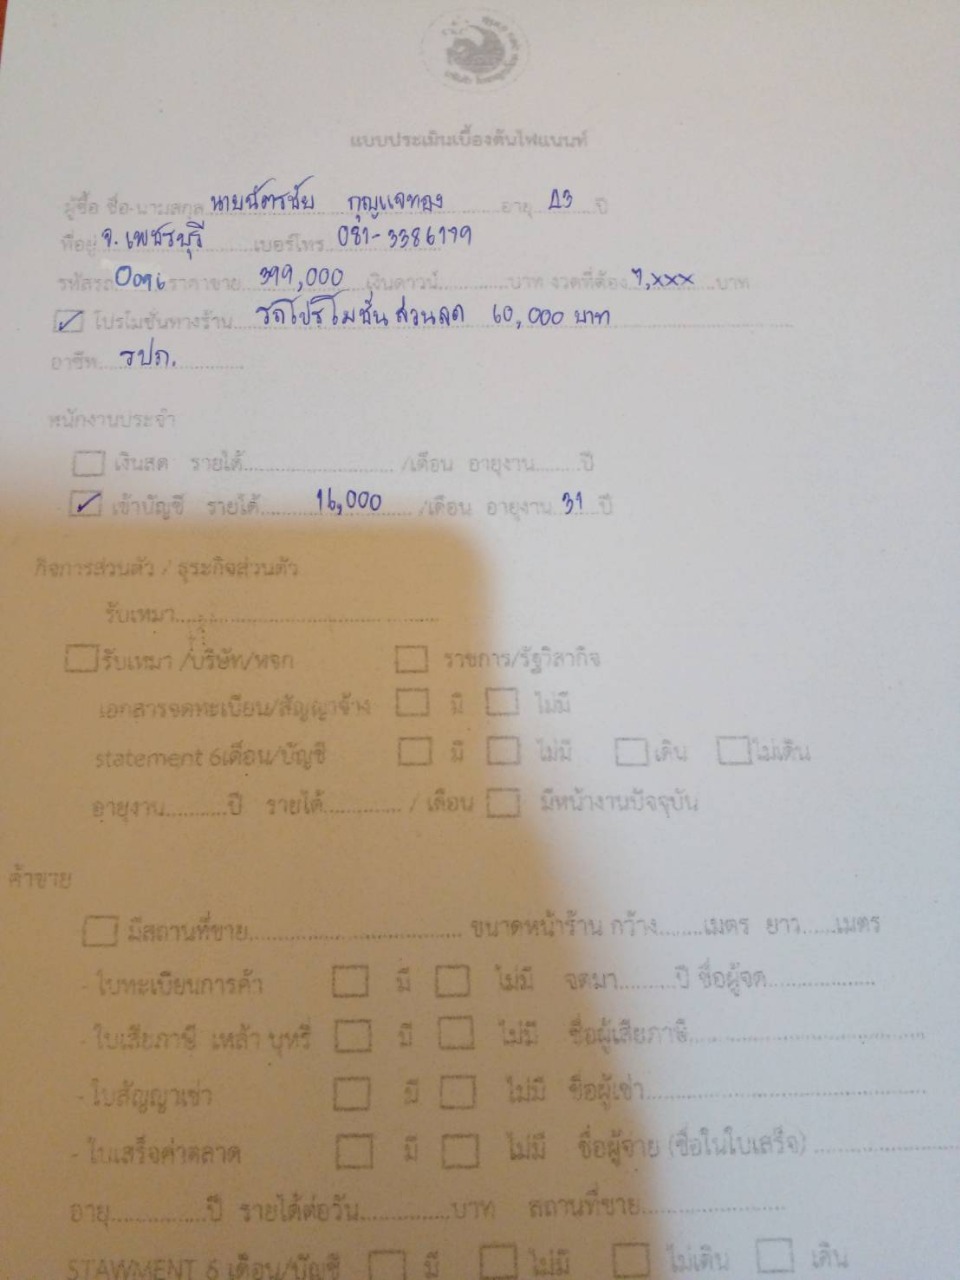 แบบประเมินเบื้องต้นไฟแนนท์
ผู้ซื้อ ชื่อ-นามสกุล นายฉัตรชัย กุญแจทอง อายุ 53 ปี
ที่อยู่ จ. เพชรบุรี เบอร์โทร 081-3386199
รหัสรถ 0096 ราคาขาย 399,000 เงินดาวน์ บาท งวดที่ต้อง 7,xxx บาท
โปรโมชั่นทางร้าน รถโปรโมชั่น ส่วนลด 60,000 บาท
อาชีพ รปภ.
พนักงานประจำ
เงินสด รายได้ /เดือน อายุงาน ปี
เข้าบัญชี รายได้ 16,000 /เดือน อายุงาน 31 ปี
กิจการส่วนตัว / ธุระกิจส่วนตัว
รับเหมา
รับเหมา /บริษัท/หจก ราชการ/รัฐวิสากิจ
เอกสารจดทะเบียน/สัญญาจ้าง มี ไม่มี
statement 6เดือน/บัญชี มี ไม่มี เดิน ไม่เดิน
อายุงาน ปี รายได้ / เดือน มีหน้างานปัจจุบัน
ค้าขาย
มีสถานที่ขาย ขนาดหน้าร้าน กว้าง เมตร ยาว เมตร
- ใบทะเบียนการค้า มี ไม่มี จดมา ปี ชื่อผู้จด
- ใบเสียภาษี เหล้า บุหรี่ มี ไม่มี ชื่อผู้เสียภาษี
- ใบสัญญาเช่า มี ไม่มี ชื่อผู้เช่า
- ใบเสร็จค่าตลาด มี ไม่มี ชื่อผู้จ่าย (ชื่อในใบเสร็จ)
อายุ ปี รายได้ต่อวัน บาท สถานที่ขาย
STAWMENT 6 เดือน/บัญชี มี ไม่มี ไม่เดิน เดิน